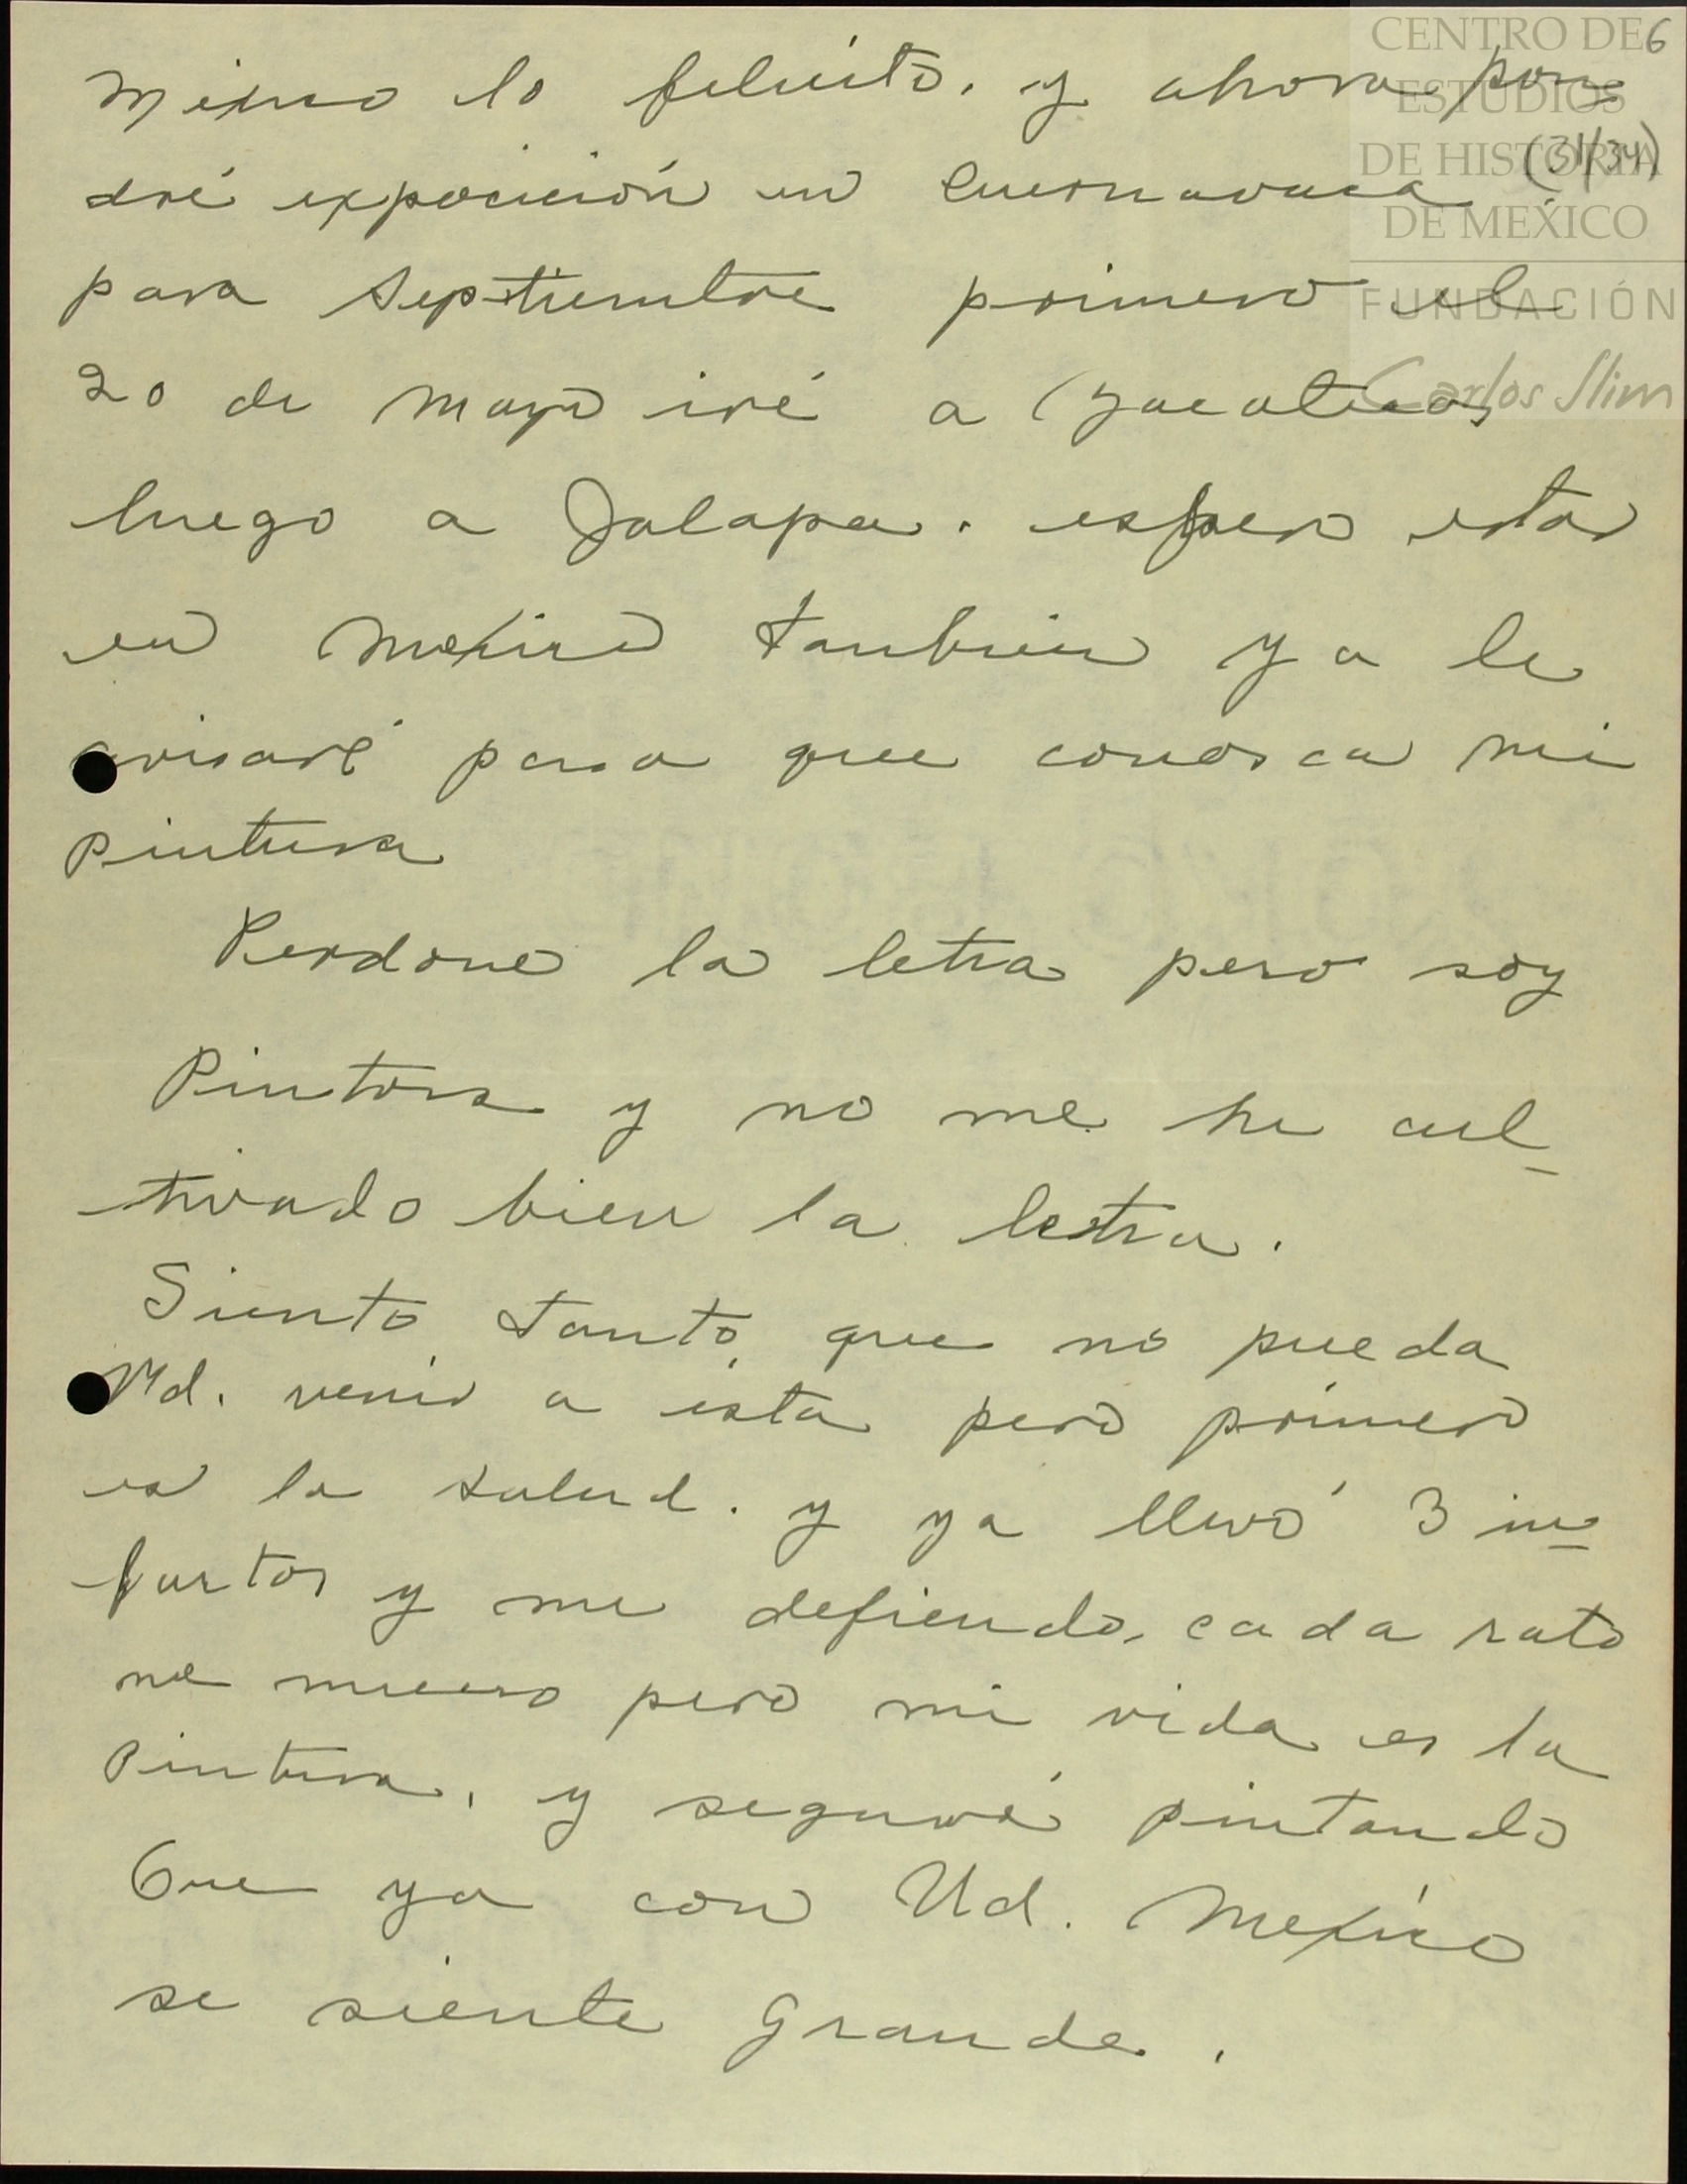 CENTRO DE 6
ESTUDIOS
DE HISTORIA (31/34)
DE MÉXICO
FUNDACIÓN
Carlos Slim
México lo felicito. y ahora pon-
dré exposición en Cuernavaca
para Septiembre primero el
20 de Mayo iré a (Zacatecas
luego a Jalapa. espero estar
en México también y a le
avisaré para que conosca mi
pintura
Perdone la letra pero soy
Pintora y no me he cul-
tivado bien la letra.
Siento tanto que no pueda
Ud. venir a ésta pero primero
es la salud. y ya llevó 3 in-
fartos y me defiendo, cada rato
me muero pero mi vida es la
Pintura, y seguiré pintando
Que ya con Ud. México
se siente Grande.